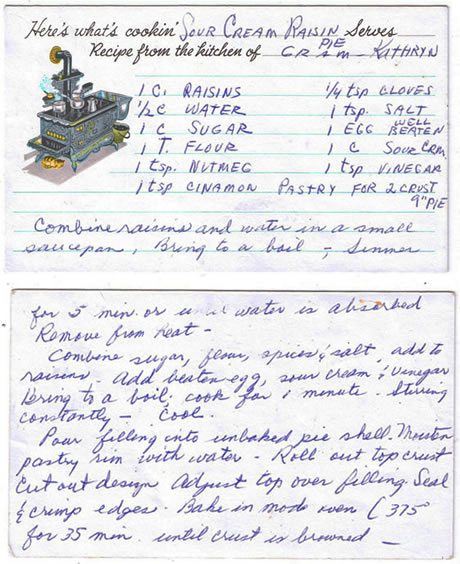 Here's what's cookin' SOUR CREAM RAISIN PIE Serves
Recipe from the kitchen of GRam - KATHRYN
1 C. RAISINS 1/4 tsp CLOVES
1/2 C WATER 1 tsp. SALT
1 C SUGAR 1 EGG WELL BEATEN
1 T. FLOUR 1 C SOUR CRM.
1 tsp. NUTMEG 1 tsp VINEGAR
1 tsp CINAMON PASTRY FOR 2 CRUST 9" PIE
Combine raisins and water in a small
saucepan, Bring to a boil - Simmer
for 5 min. or until water is absorbed
Remove from heat -
Combine sugar, flour, spices & salt, add to
raisins. Add beaten egg, sour cream & vinegar
Bring to a boil; cook for 1 minute - Stirring
constantly - Cool.
Pour filling into unbaked pie shell - Moisten
pastry rim with water - Roll out top crust
Cut out design Adjust top over filling Seal
& crimp edges. Bake in mode oven (375°
for 35 min. until crust is browned -